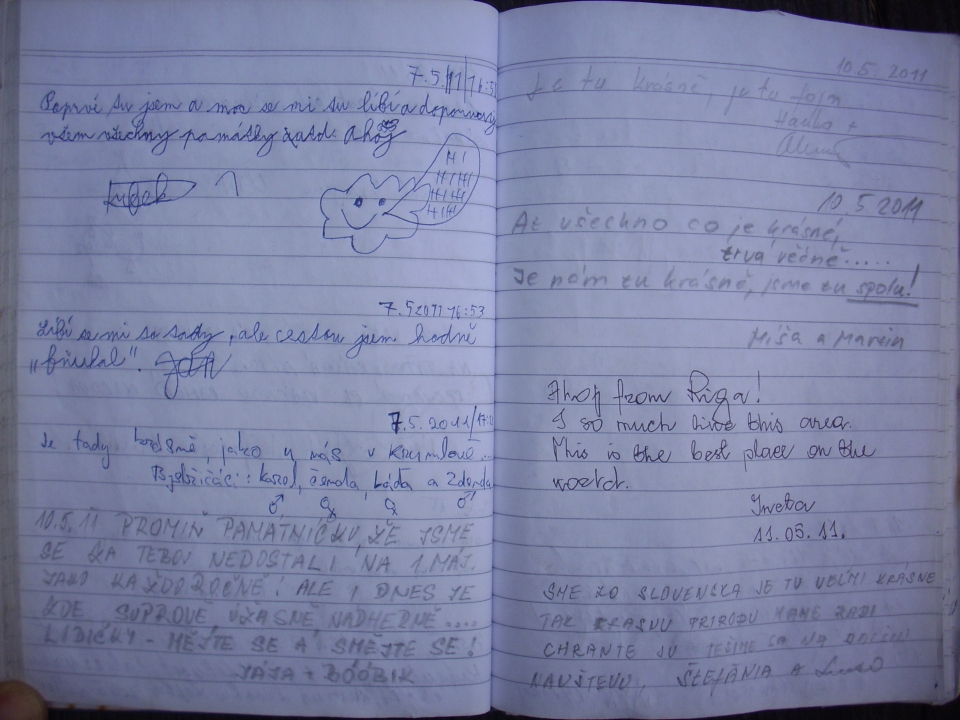 7.5/11/16:53
Poprvé tu jsem a moc se mi tu líbí a doporučuji
všem všechny památky žatd: Ahoj
Kubek
HI
HIHI
HIHI
HIHI
7.5 2011 16:53
Líbí se mi to tady, ale cestou jsem hodně
„brukal".
7.5.2011/17:
Je tady krásně, jako u nás v Krumlově...
Bystřičáci: Karel, Čenda, Láďa a Zdenda
♂ ♀ ♀ ♂
10.5.11 PROMIŇ PAMÁTNÍČKU, ŽE JSME
SE ZA TEBOU NEDOSTALI NA 1.MÁJ.
JAKO KAŽDOROČNĚ! ALE I DNES JE
ZDE SUPROVĚ, ÚŽASNĚ NÁDHERNĚ....
LIDIČKY - MĚJTE SE A SMĚJTE SE!
JÁJA + BÓÓBIK
10.5.2011
Je tu krásně, je tu fajn
Hanka +
10 5 2011
Ať všechno co je krásné,
trvá věčně.....
Je nám tu krásně, jsme tu spolu!
Míša a Marcin
Ahoj from Riga!
I so much like this area.
This is the best place on the
world.
Iveta
11.05.11.
SME ZO SLOVENSKA JE TU VEĽMI KRÁSNE
TAK KRASNU PRIRODU MAME RADI
CHRANTE JU TEŠIME SA NA ĎALŠIU
NAVŠTEVU, ŠTEFÁNIA A